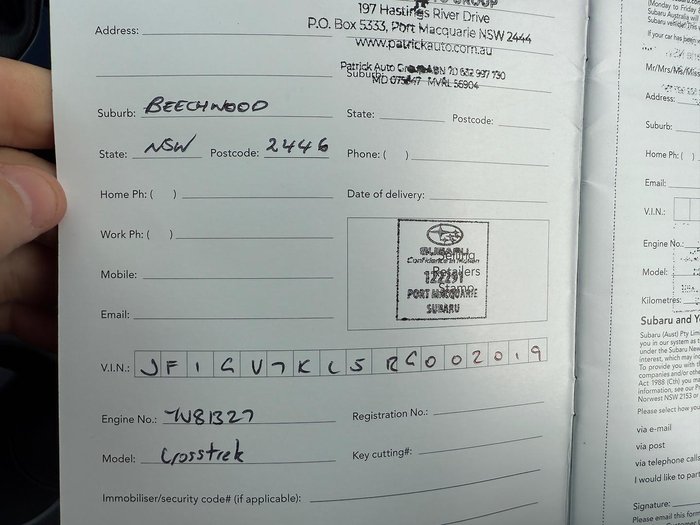 197 Hastings River Drive
Address:
P.O. Box 5333, Port Macquarie NSW 2444
www.patrickauto.com.au
Patrick Auto
Suburb:
Suburb: BEECHWOOD
State: Postcode:
State: NSW Postcode: 2446
Phone: ( )
Home Ph: ( )
Date of delivery:
Work Ph: ( )
SUBARU
Selling
Confidence in Motion
122291
Retailers
PORT MACQUARIE
Stamp
SUBARU
Mobile:
Email:
V.I.N.: JF1GU7KL5RG002019
Engine No.: YV81327
Registration No.:
Model: Crosstrek
Key cutting#:
Immobiliser/security code# (if applicable):
(Monday to Friday 8
Subaru Australia will
Subaru vehicle. This
If your car has been
Mr/Mrs/Ms/
Address:
Suburb:
Home Ph: (
Email:
V.I.N.:
Engine No.:
Model:
Kilometres:
Subaru and Yo
Subaru (Aust) Pty Lim
you in our system as t
under the Subaru New
interest, which may in
To provide you with t
companies and/or othe
Act 1988 (Cth) you ma
information, see our Pr
Norwest NSW 2153 or
Please select how you
via e-mail
via post
via telephone calls
I would like to part
Signature:
Please email this form